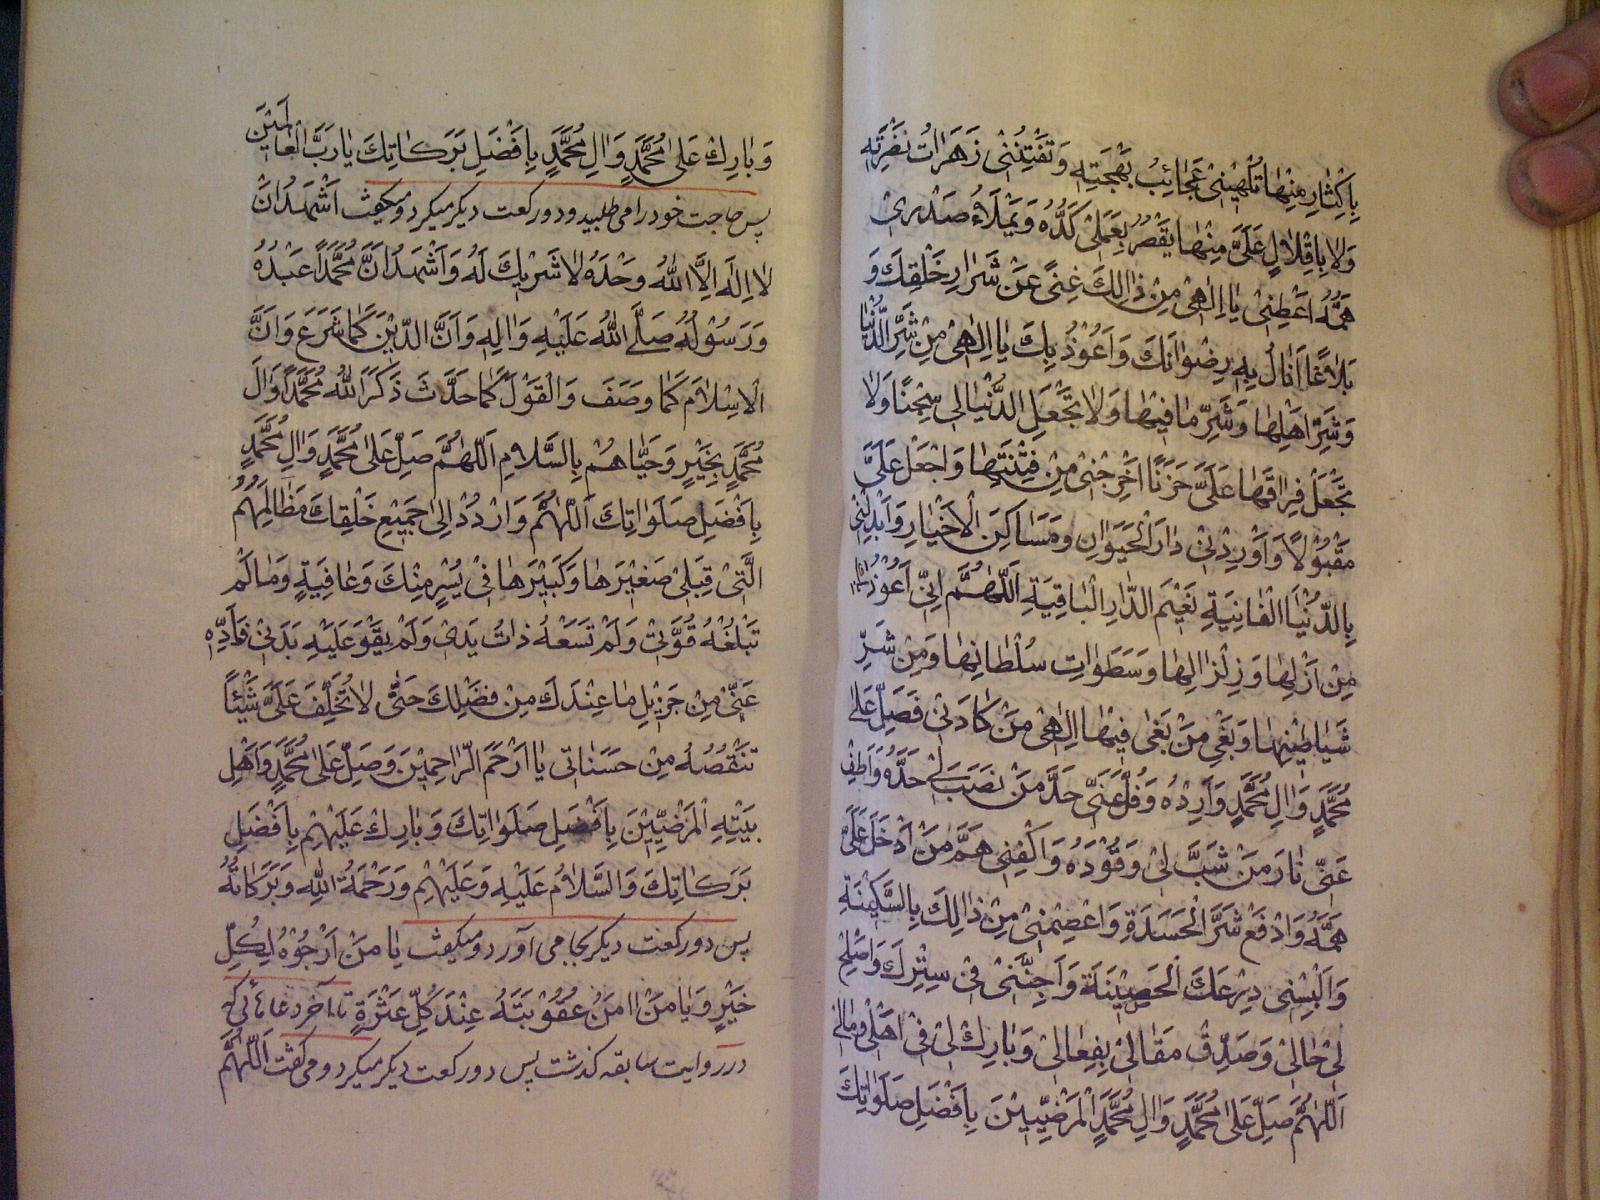 بِاِكْثارٍ مِنْها تُلْهِيْنِيْ عَجائِبُ بَهْجَتِهِ وَتَفْتِنُنِيْ زَهَراتُ نَضْرَتِهِ
وَلا بِاِقْلالٍ عَلَيَّ مِنْها يَقْصُرُ بِعَمَلِيْ كَدُّهُ وَيَمْلَاُ صَدْرِيْ
هَمُّهُ اَعْطِنِيْ يا اِلٰهِيْ مِنْ ذالِكَ غِنًى عَنْ شَرارِ خَلْقِكَ وَ
بَلاغًا اَنالُ بِهِ رِضْوانَكَ وَاَعُوْذُ بِكَ يا اِلٰهِيْ مِنْ شَرِّ الدُّنْيا
وَشَرِّ اَهْلِها وَشَرِّ ما فِيْها وَلا تَجْعَلِ الدُّنْيا لِيْ سِجْنًا وَلا
تَجْعَلْ فِراقَها عَلَيَّ حَزَنًا اَخْرِجْنِيْ مِنْ فِتْنَتِها وَاجْعَلْ عَلَيَّ
مَقْبُوْلًا وَاَوْرِدْنِيْ دارَ الْحَيَوانِ وَمَساكِنَ الْاَخْيارِ وَاَبْدِلْنِيْ
بِالدُّنْيَا الْفانِيَةِ نَعِيْمَ الدّارِ الْباقِيَةِ اَللّٰهُمَّ اِنِّيْ اَعُوْذُ بِكَ
مِنْ اَزْلِها وَزِلْزالِها وَسَطَواتِ سُلْطانِها وَمِنْ شَرِّ
شَياطِيْنِها وَبَغْيِ مَنْ بَغٰى فِيْها اِلٰهِيْ مَنْ كادَنِيْ فَصَلِّ عَلٰى
مُحَمَّدٍ وَالِ مُحَمَّدٍ وَاَرِدْهُ وَفُلَّ عَنِّيْ حَدَّ مَنْ نَصَبَ لِيْ حَدَّهُ وَاَطْفِ
عَنِّيْ نارَ مَنْ شَبَّ لِيْ وَقُوْدَهُ وَاكْفِنِيْ هَمَّ مَنْ اَدْخَلَ عَلَيَّ
هَمَّهُ وَادْفَعْ شَرَّ الْحَسَدَةِ وَاعْصِمْنِيْ مِنْ ذالِكَ بِالسَّكِيْنَةِ
وَاَلْبِسْنِيْ دِرْعَكَ الْحَصِيْنَةَ وَاَجِنَّنِيْ فِيْ سِتْرِكَ وَاَصْلِحْ
لِيْ حالِيْ وَصَدِّقْ مَقالِيْ بِفِعالِيْ وَبارِكْ لِيْ فِيْ اَهْلِيْ وَمالِيْ
اَللّٰهُمَّ صَلِّ عَلٰى مُحَمَّدٍ وَالِ مُحَمَّدٍ الْمَرْضِيِّيْنَ بِاَفْضَلِ صَلَواتِكَ
وَبارِكْ عَلٰى مُحَمَّدٍ وَالِ مُحَمَّدٍ بِاَفْضَلِ بَرَكاتِكَ يا رَبَّ الْعالَمِيْنَ
پس حاجت خود را می طلبید و دو رکعت دیکر میکرد و میکفت اَشْهَدُ اَنْ
لا اِلٰهَ اِلَّا اللّٰهُ وَحْدَهُ لا شَرِيْكَ لَهُ وَاَشْهَدُ اَنَّ مُحَمَّدًا عَبْدُهُ
وَرَسُوْلُهُ صَلَّى اللّٰهُ عَلَيْهِ وَالِهِ وَاَنَّ الدِّيْنَ كَما شَرَعَ وَاَنَّ
الْاِسْلامَ كَما وَصَفَ وَالْقَوْلَ كَما حَدَّثَ ذَكَرَ اللّٰهُ مُحَمَّدًا وَالَ
مُحَمَّدٍ بِخَيْرٍ وَحَيّاهُمْ بِالسَّلامِ اَللّٰهُمَّ صَلِّ عَلٰى مُحَمَّدٍ وَالِ مُحَمَّدٍ
بِاَفْضَلِ صَلَواتِكَ اَللّٰهُمَّ وَارْدُدْ اِلٰى جَمِيْعِ خَلْقِكَ مَظالِمَهُمُ
الَّتِيْ قِبَلِيْ صَغِيْرَها وَكَبِيْرَها فِيْ يُسْرٍ مِنْكَ وَعافِيَةٍ وَمالَمْ
تَبْلُغْهُ قُوَّتِيْ وَلَمْ تَسَعْهُ ذاتُ يَدِيْ وَلَمْ يَقْوَ عَلَيْهِ بَدَنِيْ فَاَدِّهِ
عَنِّيْ مِنْ جَزِيْلِ ما عِنْدَكَ مِنْ فَضْلِكَ حَتّٰى لا تُخَلِّفَ عَلَيَّ شَيْئًا
تَنْقُصُهُ مِنْ حَسَناتِيْ يا اَرْحَمَ الرّاحِمِيْنَ وَصَلِّ عَلٰى مُحَمَّدٍ وَاَهْلِ
بَيْتِهِ الْمَرْضِيِّيْنَ بِاَفْضَلِ صَلَواتِكَ وَبارِكْ عَلَيْهِمْ بِاَفْضَلِ
بَرَكاتِكَ وَالسَّلامُ عَلَيْهِ وَعَلَيْهِمْ وَرَحْمَةُ اللّٰهِ وَبَرَكاتُهُ
پس دو رکعت دیکر بجا می آورد و میکفت يا مَنْ اَرْجُوْهُ لِكُلِّ
خَيْرٍ وَيا مَنْ امَنُ عُقُوْبَتَهُ عِنْدَ كُلِّ عَثْرَةٍ تا آخر دعائی که
در روایت سابقه کذشت پس دو رکعت دیکر میکرد و می کفت اَللّٰهُمَّ